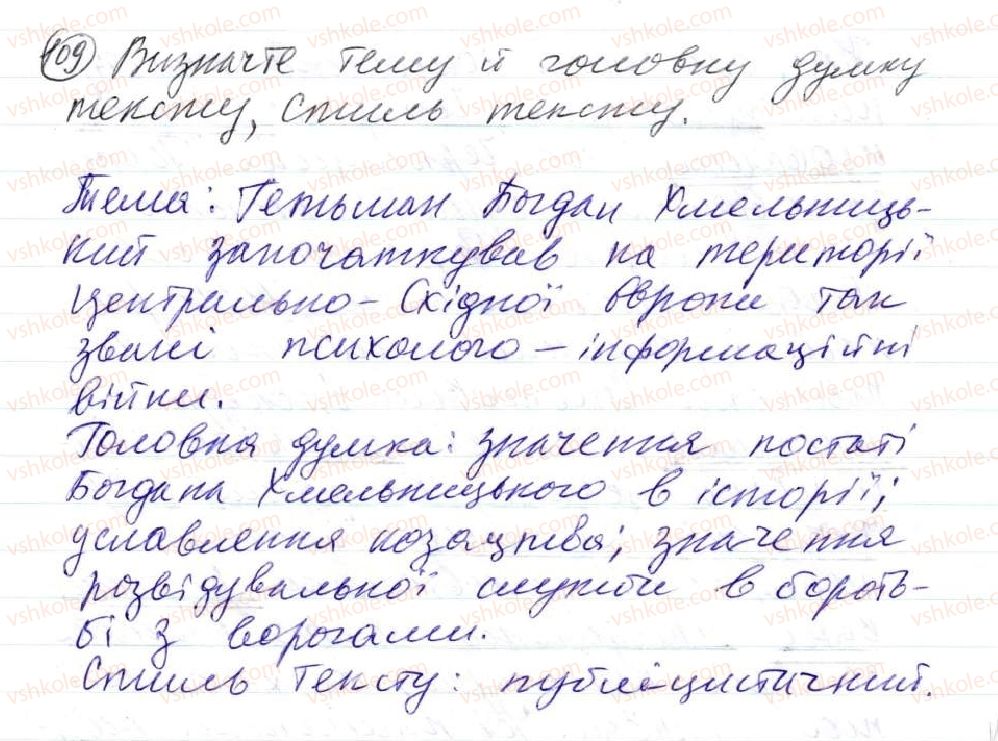 109 Визначте тему й головну думку
тексту, стиль тексту.
Тема: Гетьман Богдан Хмельниць-
кий започаткував на території
Центрально-Східної Європи так
звані психолого-інформаційні
війни.
Головна думка: значення постаті
Богдана Хмельницького в історії;
уславлення козацтва; значення
розвідувальної служби в бороть-
бі з ворогами.
Стиль тексту: публіцистичний.
vshkole.com